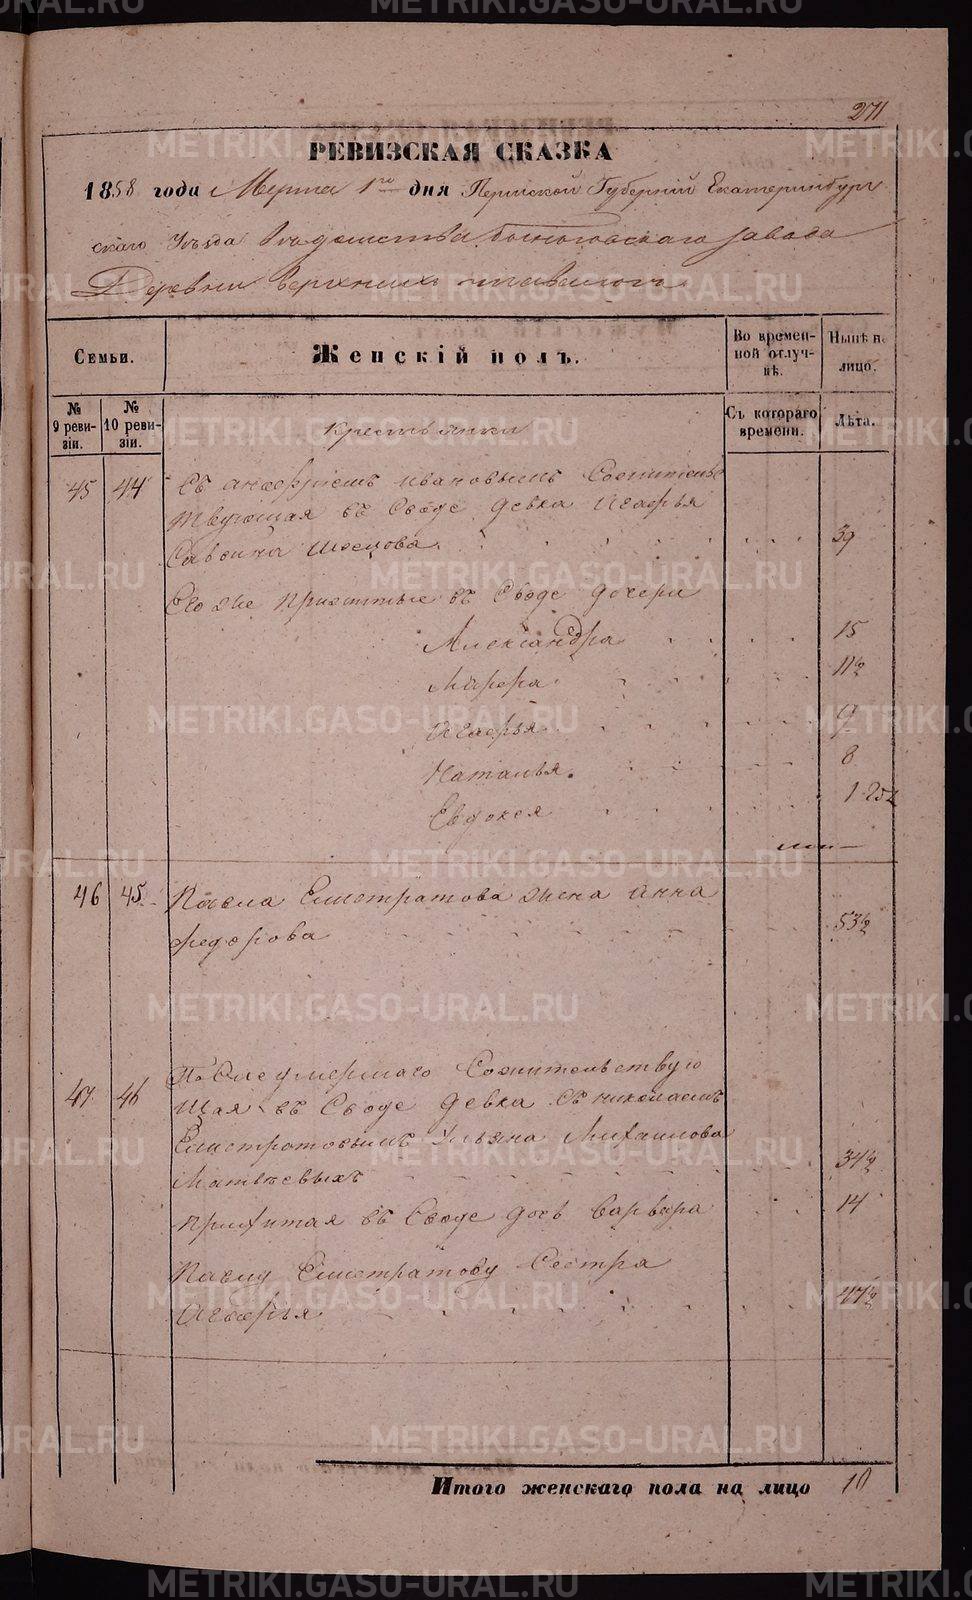 271
РЕВИЗСКАЯ СКАЗКА
1858 года Марта 1го дня Пермской Губерніи Екатеринбург
скаго Уѣзда Вѣдомства завода
Деревни Верхнихъ
Семьи.
Женскій полъ.
Во времен-
ной отлуч-
кѣ.
Нынѣ н.
лицо.
№
9 реви-
зіи.
№
10 реви-
зіи.
Съ котораго
времени.
Лѣта.
Крестьянки
45 44 Съ Ивановымъ Сожительс
твующая въ Сводѣ девка Агафья
Саввина Швецова 39
Его же прижитые въ Сводѣ дочери
Александра 15
Марфа 11½
Агафья 9
Наталья. 8
Евдокея 1
46 45 Павла Елистратова жена Анна
Федорова 53½
47 46 После умершаго Сожительствую
щая въ Сводѣ девка съ Николаемъ
Елистратовымъ Ульяна Михайлова
Матвѣевыхъ 34½
Прижитая въ Сводѣ дочь Варвара 14
Павлу Елистратову Сестра
Агафья 47½
Итого женскаго пола на лицо 10
METRIKI.GASO-URAL.RU